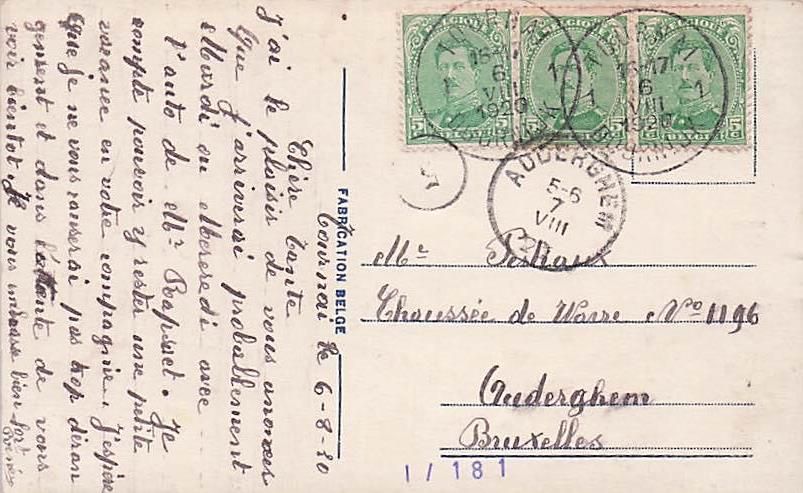 Tournai le 6-8-20
Chère Tante
J'ai le plaisir de vous anoncer
Que J'arriverai probablement
Mardi ou Mercredi avec
l'auto de Mr Rapsaet. Je
compte pouvoir y rester une petite
vacance en votre compagnie. J'espère
que je ne vous causerai pas trop déran
gement et dans l'attente de vous
voir bientôt. Je vous embrasse bien fort
FABRICATION BELGE
BELGIQUE
BELGIQUE
16-17
6
VIII
1920
1 1
16-17
6
VIII
1920
1 1
5
AUDERGHEM
5-6
7
VIII
20
Mr
Chaussée de Wavre No 1196
Auderghem
Bruxelles
1/181